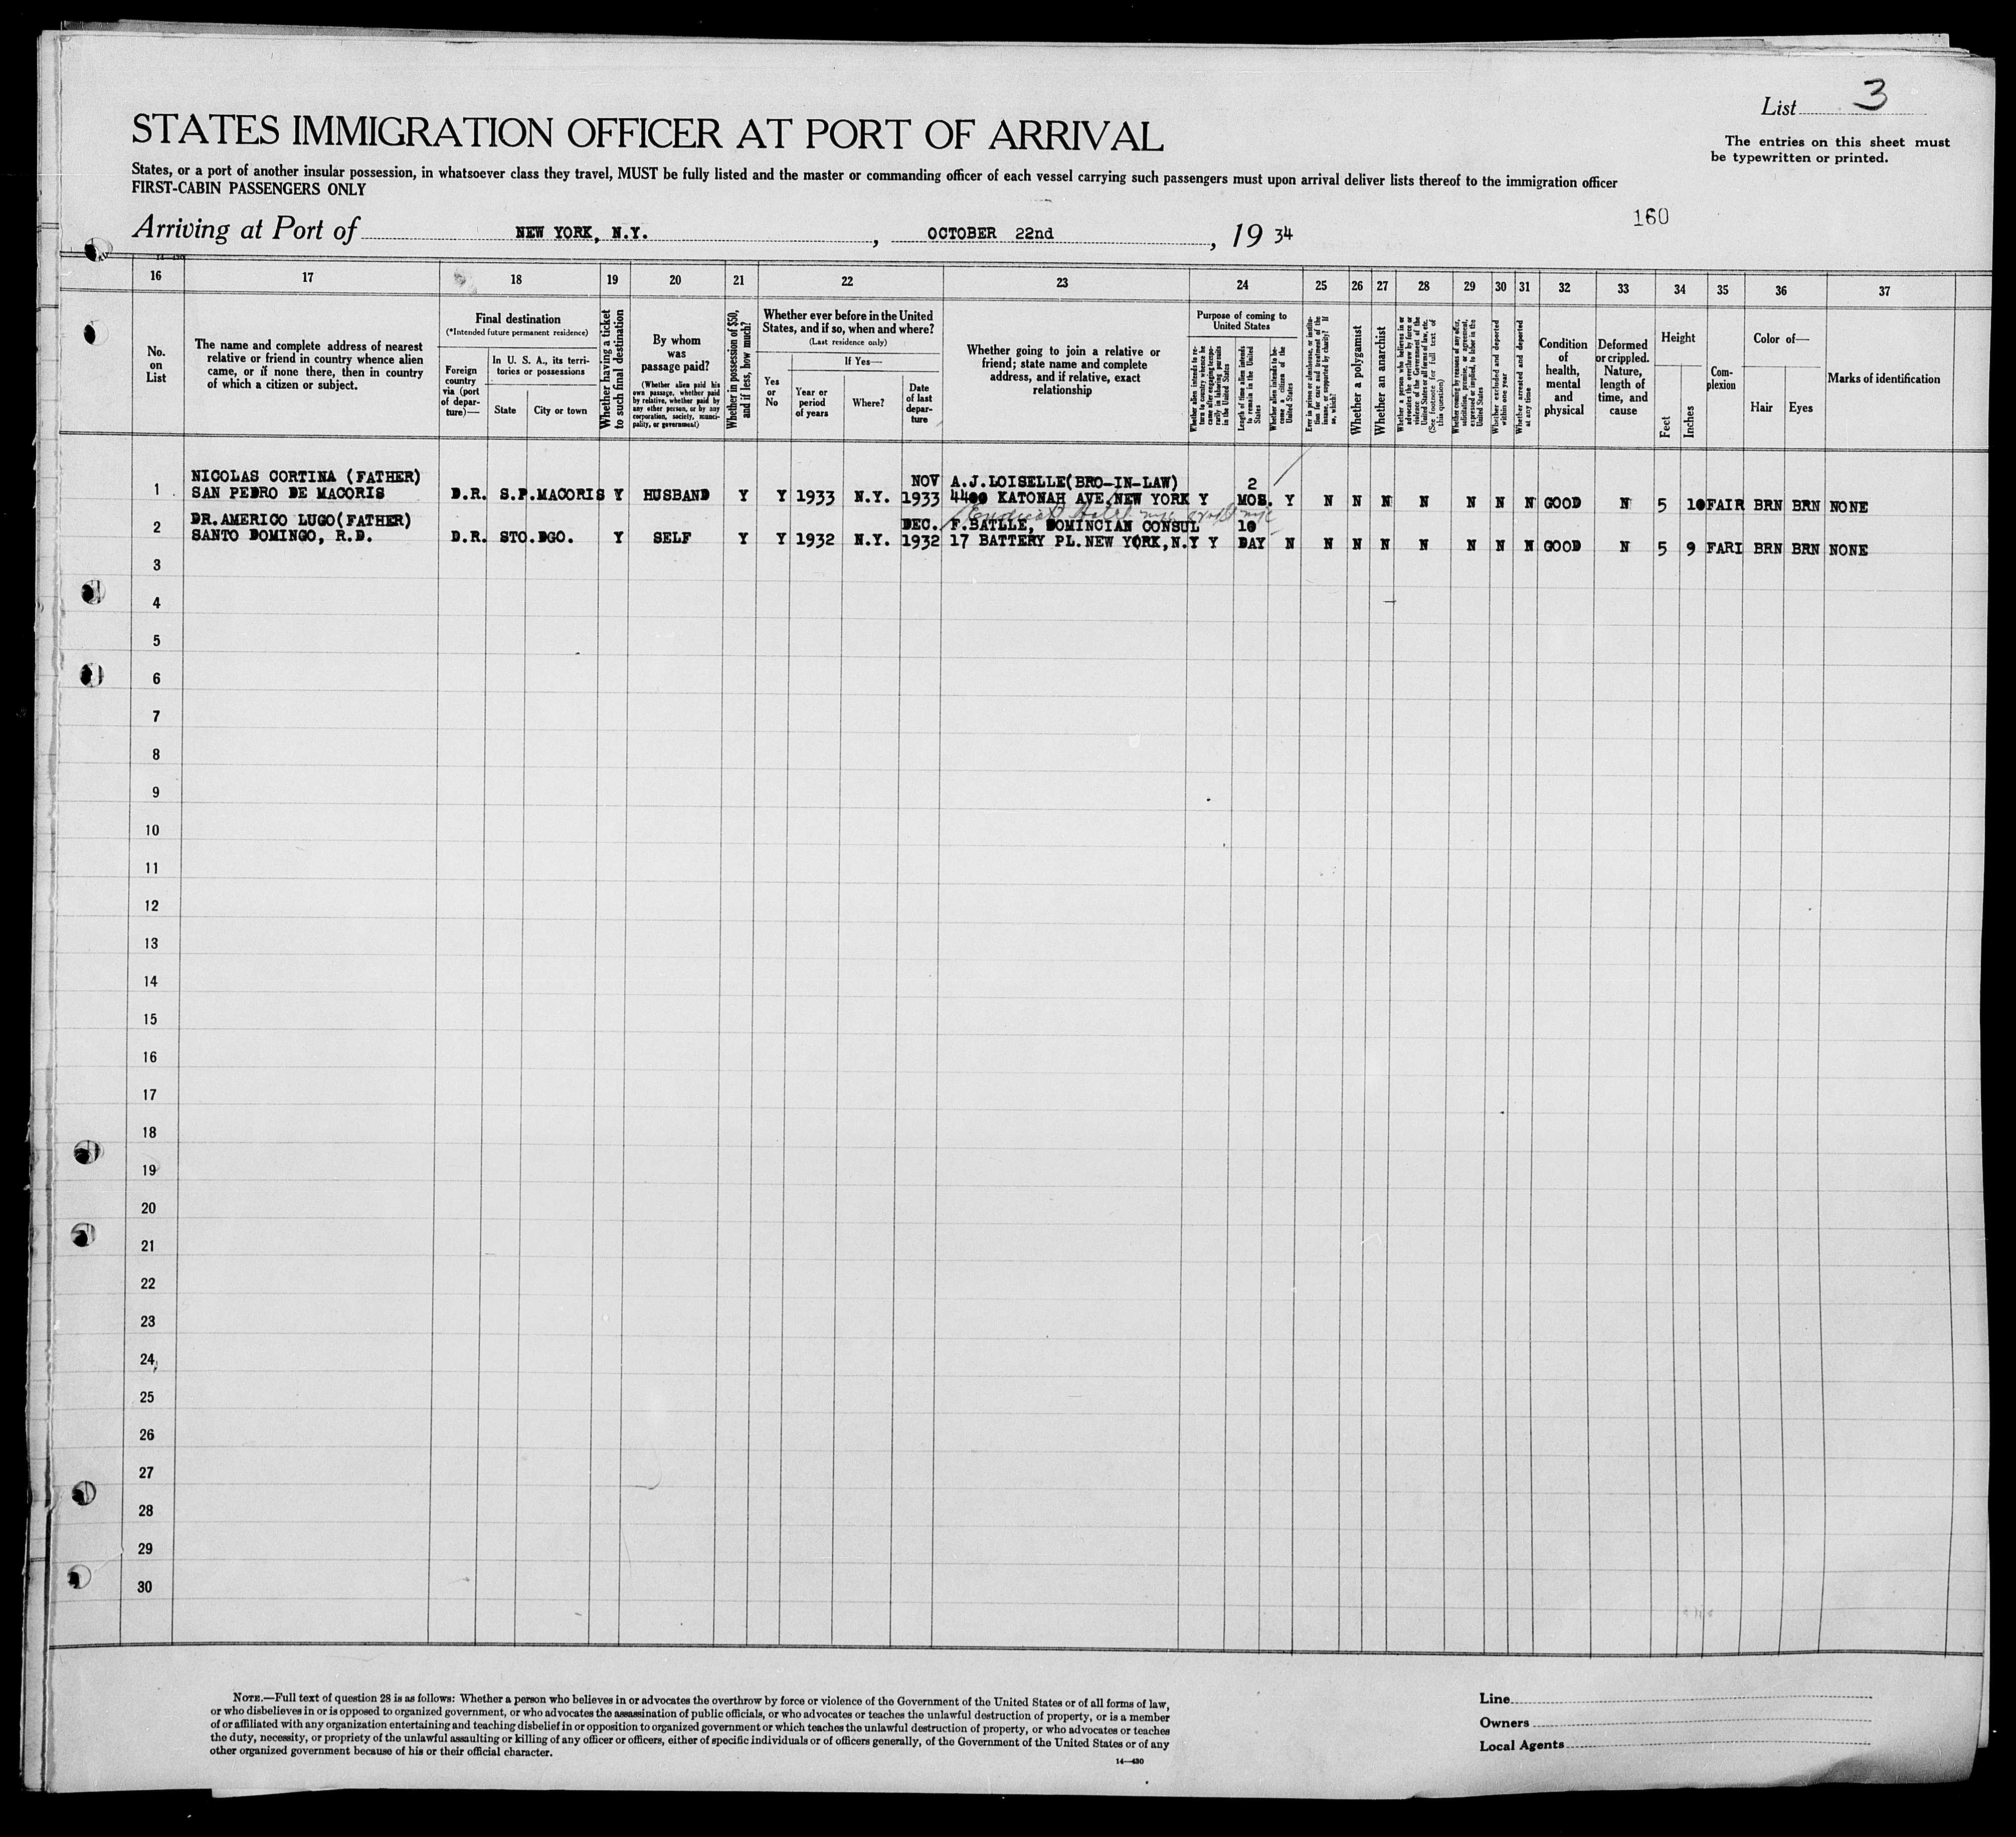 List 3
STATES IMMIGRATION OFFICER AT PORT OF ARRIVAL
The entries on this sheet must
be typewritten or printed.
States, or a port of another insular possession, in whatsoever class they travel, MUST be fully listed and the master or commanding officer of each vessel carrying such passengers must upon arrival deliver lists thereof to the immigration officer
FIRST-CABIN PASSENGERS ONLY
160
Arriving at Port of NEW YORK, N.Y. , OCTOBER 22nd , 19 34
16 17 18 19 20 21 22 23 24 25 26 27 28 29 30 31 32 33 34 35 36 37
No.
on
List
The name and complete address of nearest
relative or friend in country whence alien
came, or if none there, then in country
of which a citizen or subject.
Final destination
(*Intended future permanent residence)
Foreign
country
via (port
of depar-
ture)—
In U. S. A., its terri-
tories or possessions
State
City or town
Whether having a ticket
to such final destination
By whom
was
passage paid?
(Whether alien paid his
own passage, whether paid
by relative, whether paid by
any other person, or by any
corporation, society, munici-
pality, or government)
Whether in possession of $50,
and if less, how much?
Whether ever before in the United
States, and if so, when and where?
(Last residence only)
Yes
or
No
If Yes—
Year or
period
of years
Where?
Date
of last
depar-
ture
Whether going to join a relative or
friend; state name and complete
address, and if relative, exact
relationship
Purpose of coming to
United States
Whether alien intends to re-
turn to country whence he
came after engaging tempo-
rarily in laboring pursuits
in the United States
Length of time alien intends
to remain in the United
States
Whether alien intends to be-
come a citizen of the
United States
Ever in prison or almshouse, or institu-
tion for care and treatment of the
insane, or supported by charity? If
so, which?
Whether a polygamist
Whether an anarchist
Whether a person who believes in or
advocates the overthrow by force or
violence of the Government of the
United States or all forms of law, etc.
(See footnote for full text of
this question)
Whether coming by reason of any offer,
solicitation, promise, or agreement,
expressed or implied, to labor in the
United States
Whether excluded and deported
within one year
Whether arrested and deported
at any time
Condition
of
health,
mental
and
physical
Deformed
or crippled.
Nature,
length of
time, and
cause
Height
Feet
Inches
Com-
plexion
Color of—
Hair
Eyes
Marks of identification
NICOLAS CORTINA (FATHER) NOV A.J.LOISELLE(BRO-IN-LAW) 2
1 SAN PEDRO DE MACORIS D.R. S.P.MACORIS Y HUSBAND Y Y 1933 N.Y. 1933 4400 KATONAH AVE,NEW YORK Y MOS. Y N N N N N N N GOOD N 5 10 FAIR BRN BRN NONE
DR.AMERICO LUGO(FATHER) DEC. F.BATLLE, DOMINCIAN CONSUL 10
2 SANTO DOMINGO, R.D. D.R. STO.DGO. Y SELF Y Y 1932 N.Y. 1932 17 BATTERY PL.NEW YORK,N.Y Y DAY N N N N N N N N GOOD N 5 9 FARI BRN BRN NONE
3
4
5
6
7
8
9
10
11
12
13
14
15
16
17
18
19
20
21
22
23
24
25
26
27
28
29
30
NOTE.—Full text of question 28 is as follows: Whether a person who believes in or advocates the overthrow by force or violence of the Government of the United States or of all forms of law,
or who disbelieves in or is opposed to organized government, or who advocates the assassination of public officials, or who advocates or teaches the unlawful destruction of property, or is a member
of or affiliated with any organization entertaining and teaching disbelief in or opposition to organized government or which teaches the unlawful destruction of property, or who advocates or teaches
the duty, necessity, or propriety of the unlawful assaulting or killing of any officer or officers, either of specific individuals or of officers generally, of the Government of the United States or of any
other organized government because of his or their official character.
14—430
Line
Owners
Local Agents